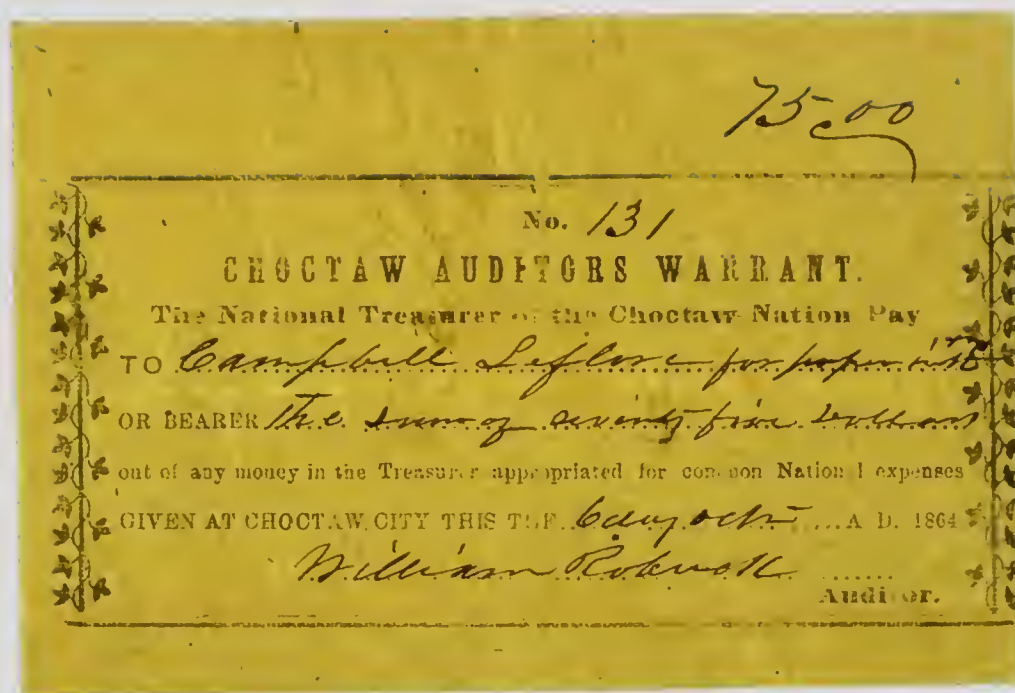 75.00
No. 131
CHOCTAW AUDITORS WARRANT.
The National Treasurer of the Choctaw Nation Pay
TO Campbell Leflore for paper
OR BEARER The sum of seventy five Dollars
out of any money in the Treasurer appropriated for common National expenses
GIVEN AT CHOCTAW CITY THIS THE 6 day Oct A D. 1864
William
Auditor.